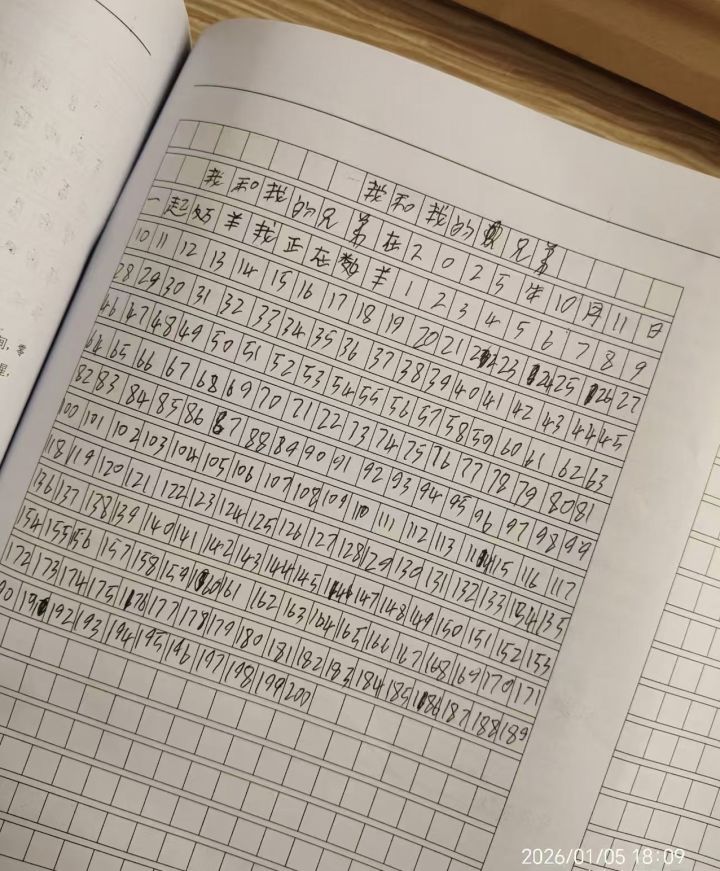 我和我的兄弟
我和我的兄弟在2025年10月11日
一起数羊我正在数羊1 2 3 4 5 6 7 8 9
10 11 12 13 14 15 16 17 18 19 20 21 22 23 24 25 26 27
28 29 30 31 32 33 34 35 36 37 38 39 40 41 42 43 44 45
46 47 48 49 50 51 52 53 54 55 56 57 58 59 60 61 62 63
64 65 66 67 68 69 70 71 72 73 74 75 76 77 78 79 80 81
82 83 84 85 86 87 88 89 90 91 92 93 94 95 96 97 98 99
100 101 102 103 104 105 106 107 108 109 110 111 112 113 114 115 116 117
118 119 120 121 122 123 124 125 126 127 128 129 130 131 132 133 134 135
136 137 138 139 140 141 142 143 144 145 146 147 148 149 150 151 152 153
154 155 156 157 158 159 160 161 162 163 164 165 166 167 168 169 170 171
172 173 174 175 176 177 178 179 180 181 182 183 184 185 186 187 188 189
90 191 192 193 194 195 196 197 198 199 200
2026/01/05 18:09